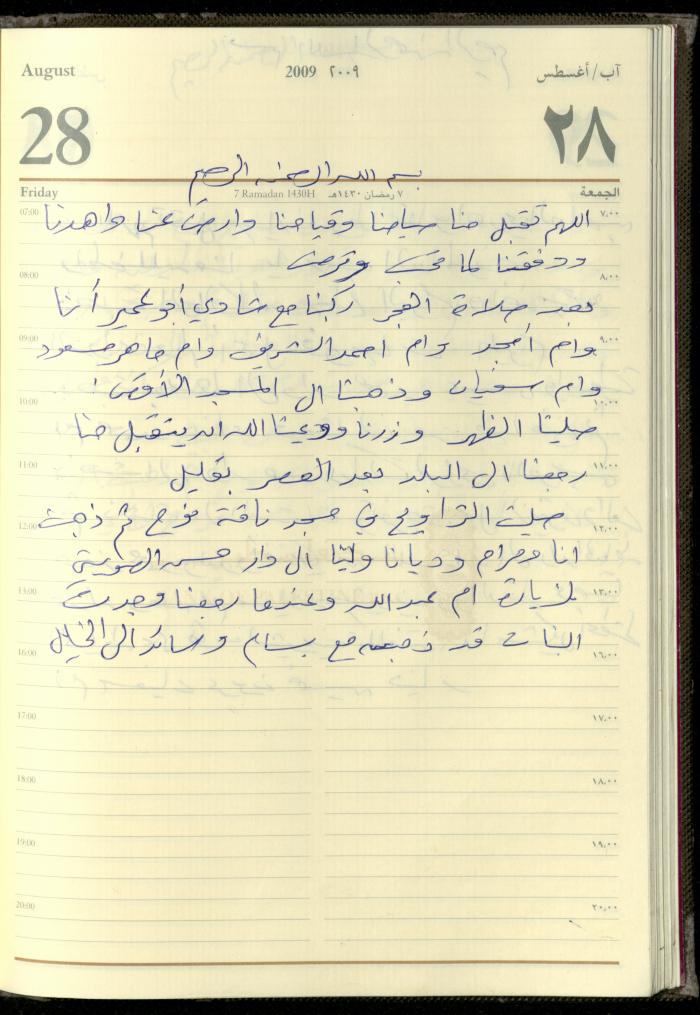 August 2009 ٢٠٠٩ آب/أغسطس
28 ٢٨
بسم الله الرحمن الرحيم
Friday 7 Ramadan 1430H ٧ رمضان ١٤٣٠هـ الجمعة
07:00 ٧,٠٠
اللهم تقبل منا صيامنا وقيامنا وارض عنا واهدنا
ووفقنا لما تحب وترضى
08:00 ٨,٠٠
بعد صلاة الفجر ركبنا مع شادي أبو أنا
09:00 ٩,٠٠
وام أمجد وام احمد الشريف وام ماهر مسعود
وام سفيان وذهبنا الى المسجد الأقصى
10:00 ١٠,٠٠
صلينا الظهر وزرنا ودعينا الله ان يتقبل منا
11:00 ١١,٠٠
رجعنا الى البلد بعد العصر بقليل
صليت التراويح في مسجد ناقة ثم ذهبت
12:00 ١٢,٠٠
انا ومرام وديانا ولينا الى دار حسن
13:00 ١٣,٠٠
لزيارة ام عبد الله وعندما رجعنا وجدت
البنات قد ذهبن مع بسام وسائد الى الخليل
16:00 ١٦,٠٠
17:00 ١٧,٠٠
18:00 ١٨,٠٠
19:00 ١٩,٠٠
20:00 ٢٠,٠٠